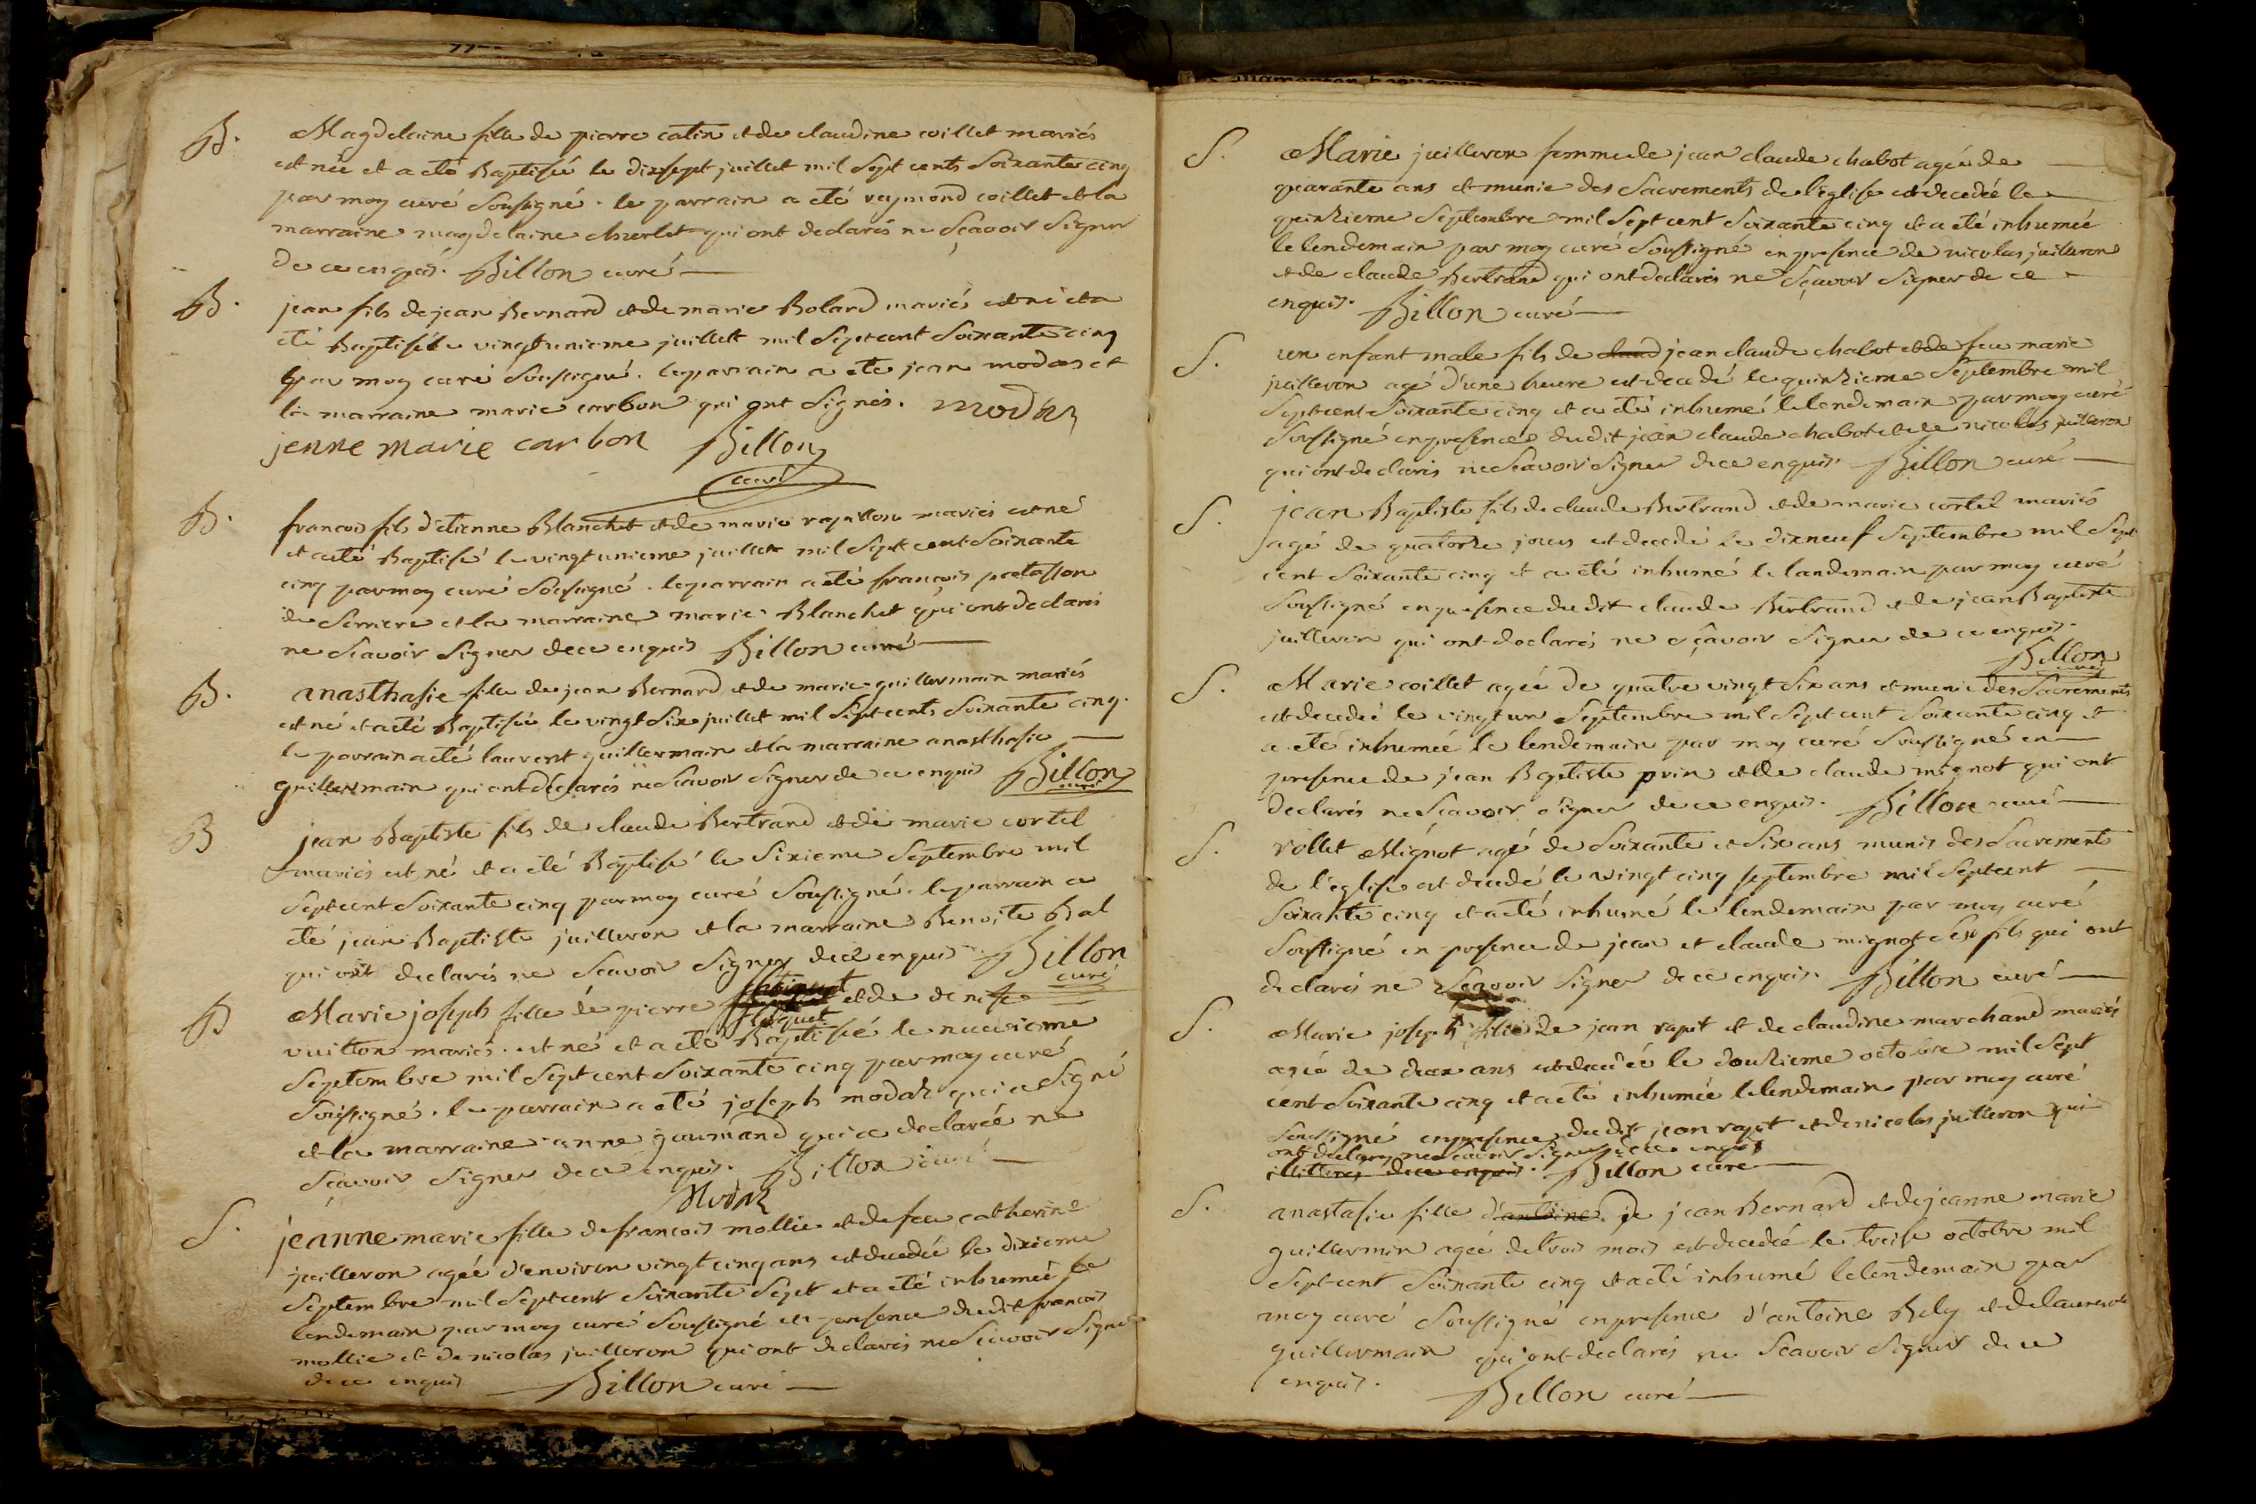 B. Magdelaine fille de pierre catin et de claudine coillet mariés
est née et a eté Baptisée le dixsept juillet mil sept cents soixante cinq
par moy curé soussigné. le parrain a eté raymond coillet et la
marraine magdelaine churlet qui ont declarés ne sçavoir signer
de ce enquis. Billon curé
B. jean fils de jean Bernard et de marie Bolard mariés est né et a
eté Baptisé le vingtunieme juillet mil sept cent soixante cinq
par moy curé soussigné. le parrain a ete jean modas et
la marraine marie carbon qui ont signés. modas
jenne marie carbon Billon
curé
B. francois fils d'etienne Blanchet et de marie rapillon mariés est né
et a eté Baptisé le vingtunieme juillet mil sept cent soixante
cinq par moy curé soussigné. le parrain a eté françois
de Serriere et la marraine marie Blanchet qui ont declarés
ne scavoir signer de ce enquis Billon curé
B. anasthasie fille de jean Bernard et de marie guillermain mariés
est né et a eté Baptisée le vingt six juillet mil sept cents soixante cinq.
le parrain a eté laurent guillermain et la marraine anasthasie
guillermain qui ont déclarés ne scavoir signer de ce enquis Billon
curé
B jean Baptiste fils de claude Bertrand et de marie cortel
mariés est né et a eté Baptisé le sixieme septembre mil
sept cent soixante cinq par moy curé soussigné. le parrain a
eté jean Baptiste juilleron et la marraine Benoite Bal
qui ont declarés ne scavoir signer de ce enquis. Billon
curé
B Marie joseph fille de pierre et de denise
vuitton mariés. est né et a eté Baptisé le nuevieme
septembre mil sept cent soixante cinq par moy curé
soussigné. le parrain a eté joseph modas qui a signé
et la marraine anne goumand qui a declarée ne
scavoir signer de ce enquis. Billon curé
modas
S. jeanne marie fille de francois mollie et de feue catherine
juilleron agée d'environ vingt cinq ans est decedée le dixieme
septembre mil sept cent soixante sept et a eté inhumée le
lendemain par moy curé soussigné en presence dudit francois
mollie et de nicolas juilleron qui ont declarés ne scavoir signer
de ce enquis Billon curé
S. Marie juilleron femme de jean claude chabot agée de
quarante ans et munie des sacrements de l'eglise est decedée le
quinzieme septembre mil sept cent soixante cinq et a eté inhumée
le lendemain par moy curé soussigné en presence de nicolas juilleron
et de claude Bertrand qui ont declarés ne sçavoir signer de ce
enquis. Billon curé
S. un enfant male fils de claud jean claude chabot et de feue marie
juilleron agé d'une heure est decedé le quinzieme septembre mil
sept cent soixante cinq et a eté inhumé le lendemain par moy curé
soussigné en presence dudit jean claude chabot et de nicolas juilleron
qui ont declarés ne scavoir signer de ce enquis. Billon curé
S. jean Baptiste fils de claude Bertrand et de marie cortel mariés
agé de quatorze jours est decedé le dixneuf septembre mil sept
cent soixante cinq et a eté inhumé le landemain par moy curé
soussigné en presence dudit claude Bertrand et de jean Baptiste
juilleron qui ont declarés ne sçavoir signer de ce enquis.
Billon
curé
S. Marie coillet agée de quatre vingt six ans et munie des sacrements
est decedée le vingt un septembre mil sept cent soixante cinq et
a eté inhumée le lendemain par moy curé soussigné en
presence de jean Baptiste prin et de claude mignot qui ont
declarés ne scavoir signer de ce enquis. Billon curé
S. rollet Mignot agé de soixante et six ans munis des sacrements
de l'eglise est decedé le vingt cinq septembre mil sept cent
soixante cinq et a eté inhumé le lendemain par moy curé
soussigné en presence de jean et claude mignot ses fils qui ont
declarés ne scavoir signer de ce enquis. Billon curé
S. Marie joseph fille de jean rapit et de claudine marchand mariés
agée de deux ans est decedée le douzieme octobre mil sept
cent soixante cinq et a eté inhumée le lendemain par moy curé
soussigné en presence dudit jean rapit et de nicolas juilleron qui
ont declarés ne scavoir signer de ce enquis
illitterés de ce enquis. Billon curé
S. anastasie fille d'antoine de jean Bernard et de jeanne marie
guillermin agée de trois mois est decedée le treise octobre mil
sept cent soixante cinq et a eté inhumé le lendemain par
moy curé soussigné en presence d'antoine Bely et de laurent
guillermain qui ont declarés ne scavoir signer de ce
enquis. Billon curé